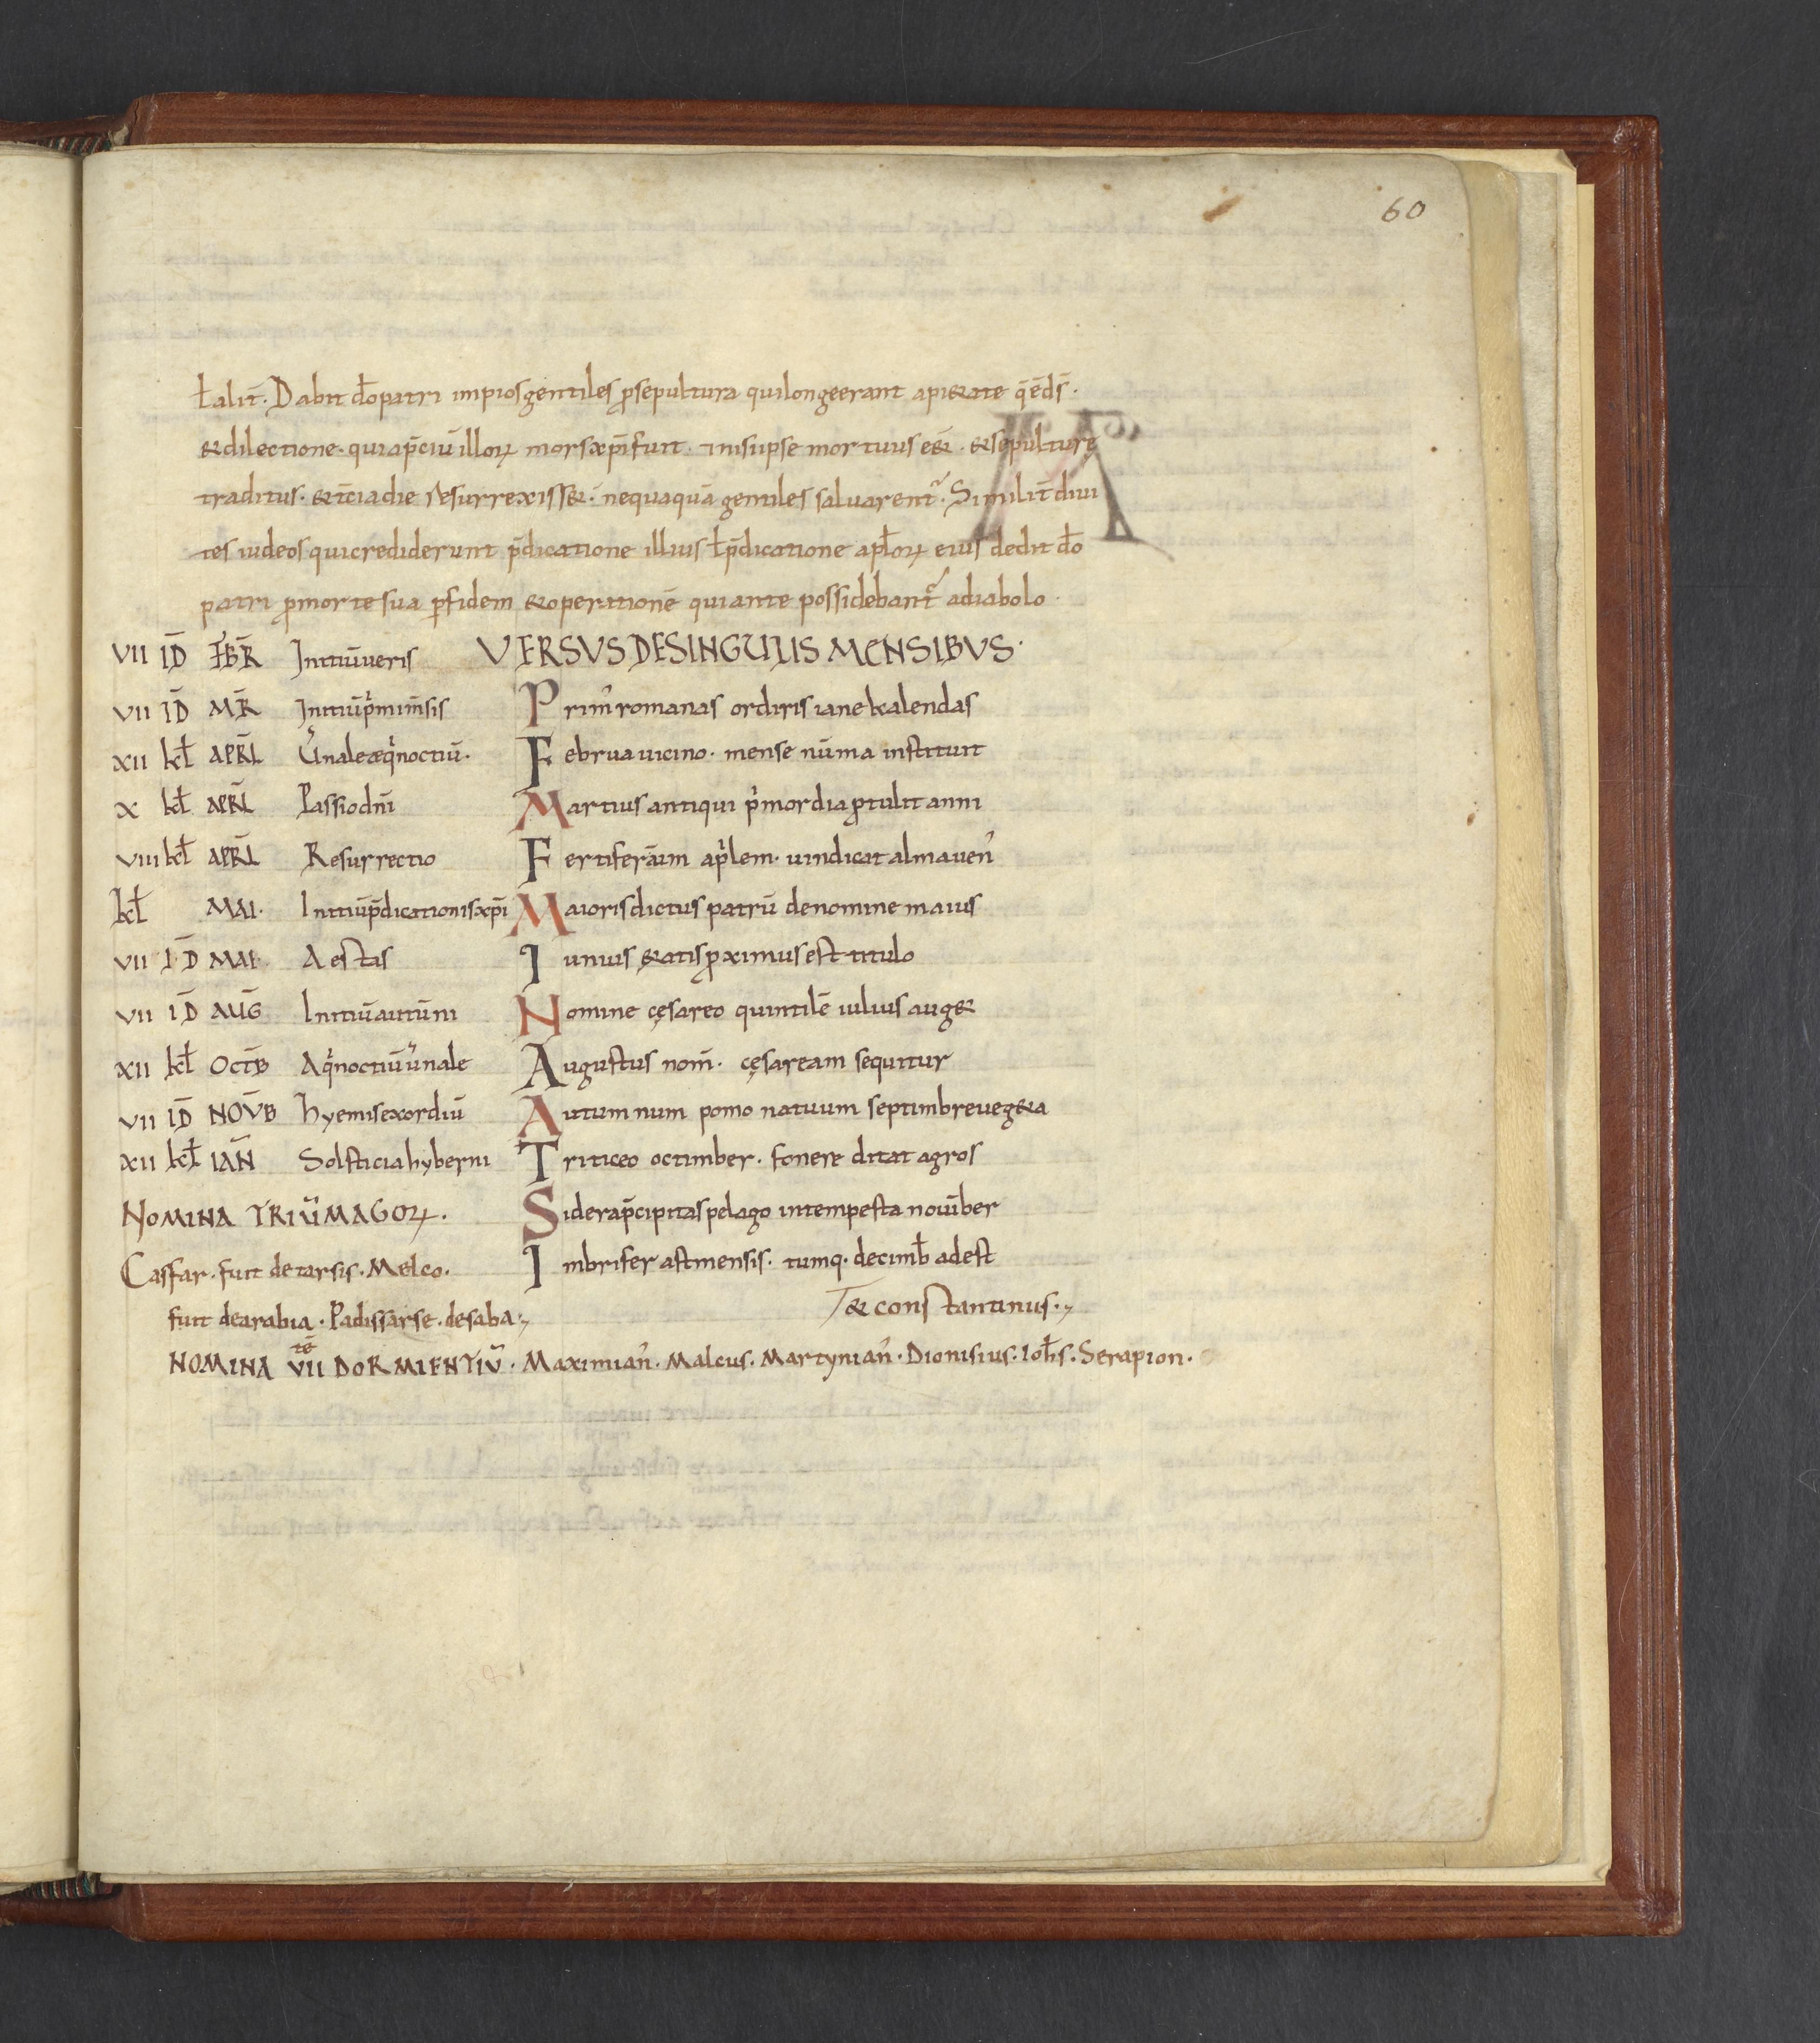 60
ł alit̄. Dabit dō patri impios gentiles p̄ sepultura qui longe erant a pietate q̄ ē ds̄.
& dilectione. quia p̄ciū illoꝝ mors xpī fuit. nisi ipse mortuus ēet. & sepulturę
traditus. & t̄cia die resurrexiss&. nequaquā gentiles saluarent᷑. Similit̄ diui
tes iudeos qui crediderunt p̄dicatione illius ł p̄dicatione apłoꝝ eius dedit dō
patri ꝓ morte sua ꝑ fidem & operationē qui ante possidebant᷑ a diabolo.
VII ID̄ FEB̄R Initiū ueris
VII ID̄ MR̄ Initiū p'mi m̄sis
XII kł APRL̄ Ūnale æq'noctiū.
X kł APRL̄ Passio dn̄i
VIII kł APRL̄ Resurrectio
kł MAI. Initiū p̄dicationis xpī
VII ID̄ MAI. Aestas
VII ID̄ AUḠ Initiū autūni
XII kł OCTB̄ Aq'noctiū ūnale
VII ID̄ NOV̄B hyemis exordiū
XII kł IAN̄ Solsticia hyberni
NOMINA TRIŪ MAGOꝝ.
Casfar. fuit de tarsis. Melco.
fuit de arabia. Padissarse. de saba.,
VERSVS DE SINGULIS MENSIBVS.
Prim' romanas ordiris iane kalendas
Februa uicino. mense nūma instituit
Martius antiqui p'mordia ꝓtulit anni
Fertiferāum ap'lem. uindicat alma uen'
Maioris dictus patrū de nomine maius
Iunius &atis ꝓximus est titulo
Nomine cęsareo quintilē iulius aug&
Augustus nom̄. cęsaream sequitur
Autumnum pomo natuum septimbre ueg&a
Triticeo octimber. fonere ditat agros
Sidera p̄cipitas pelago intempesta nouīber
Imbrifer ast mensis. tumq. decimb̄ adest
& constantinus.,
NOMINA VII tē DORMIENTIŪ. Maximian'. Malcus. Martynian'. Dionisius. Ioh̄s. Serapion.